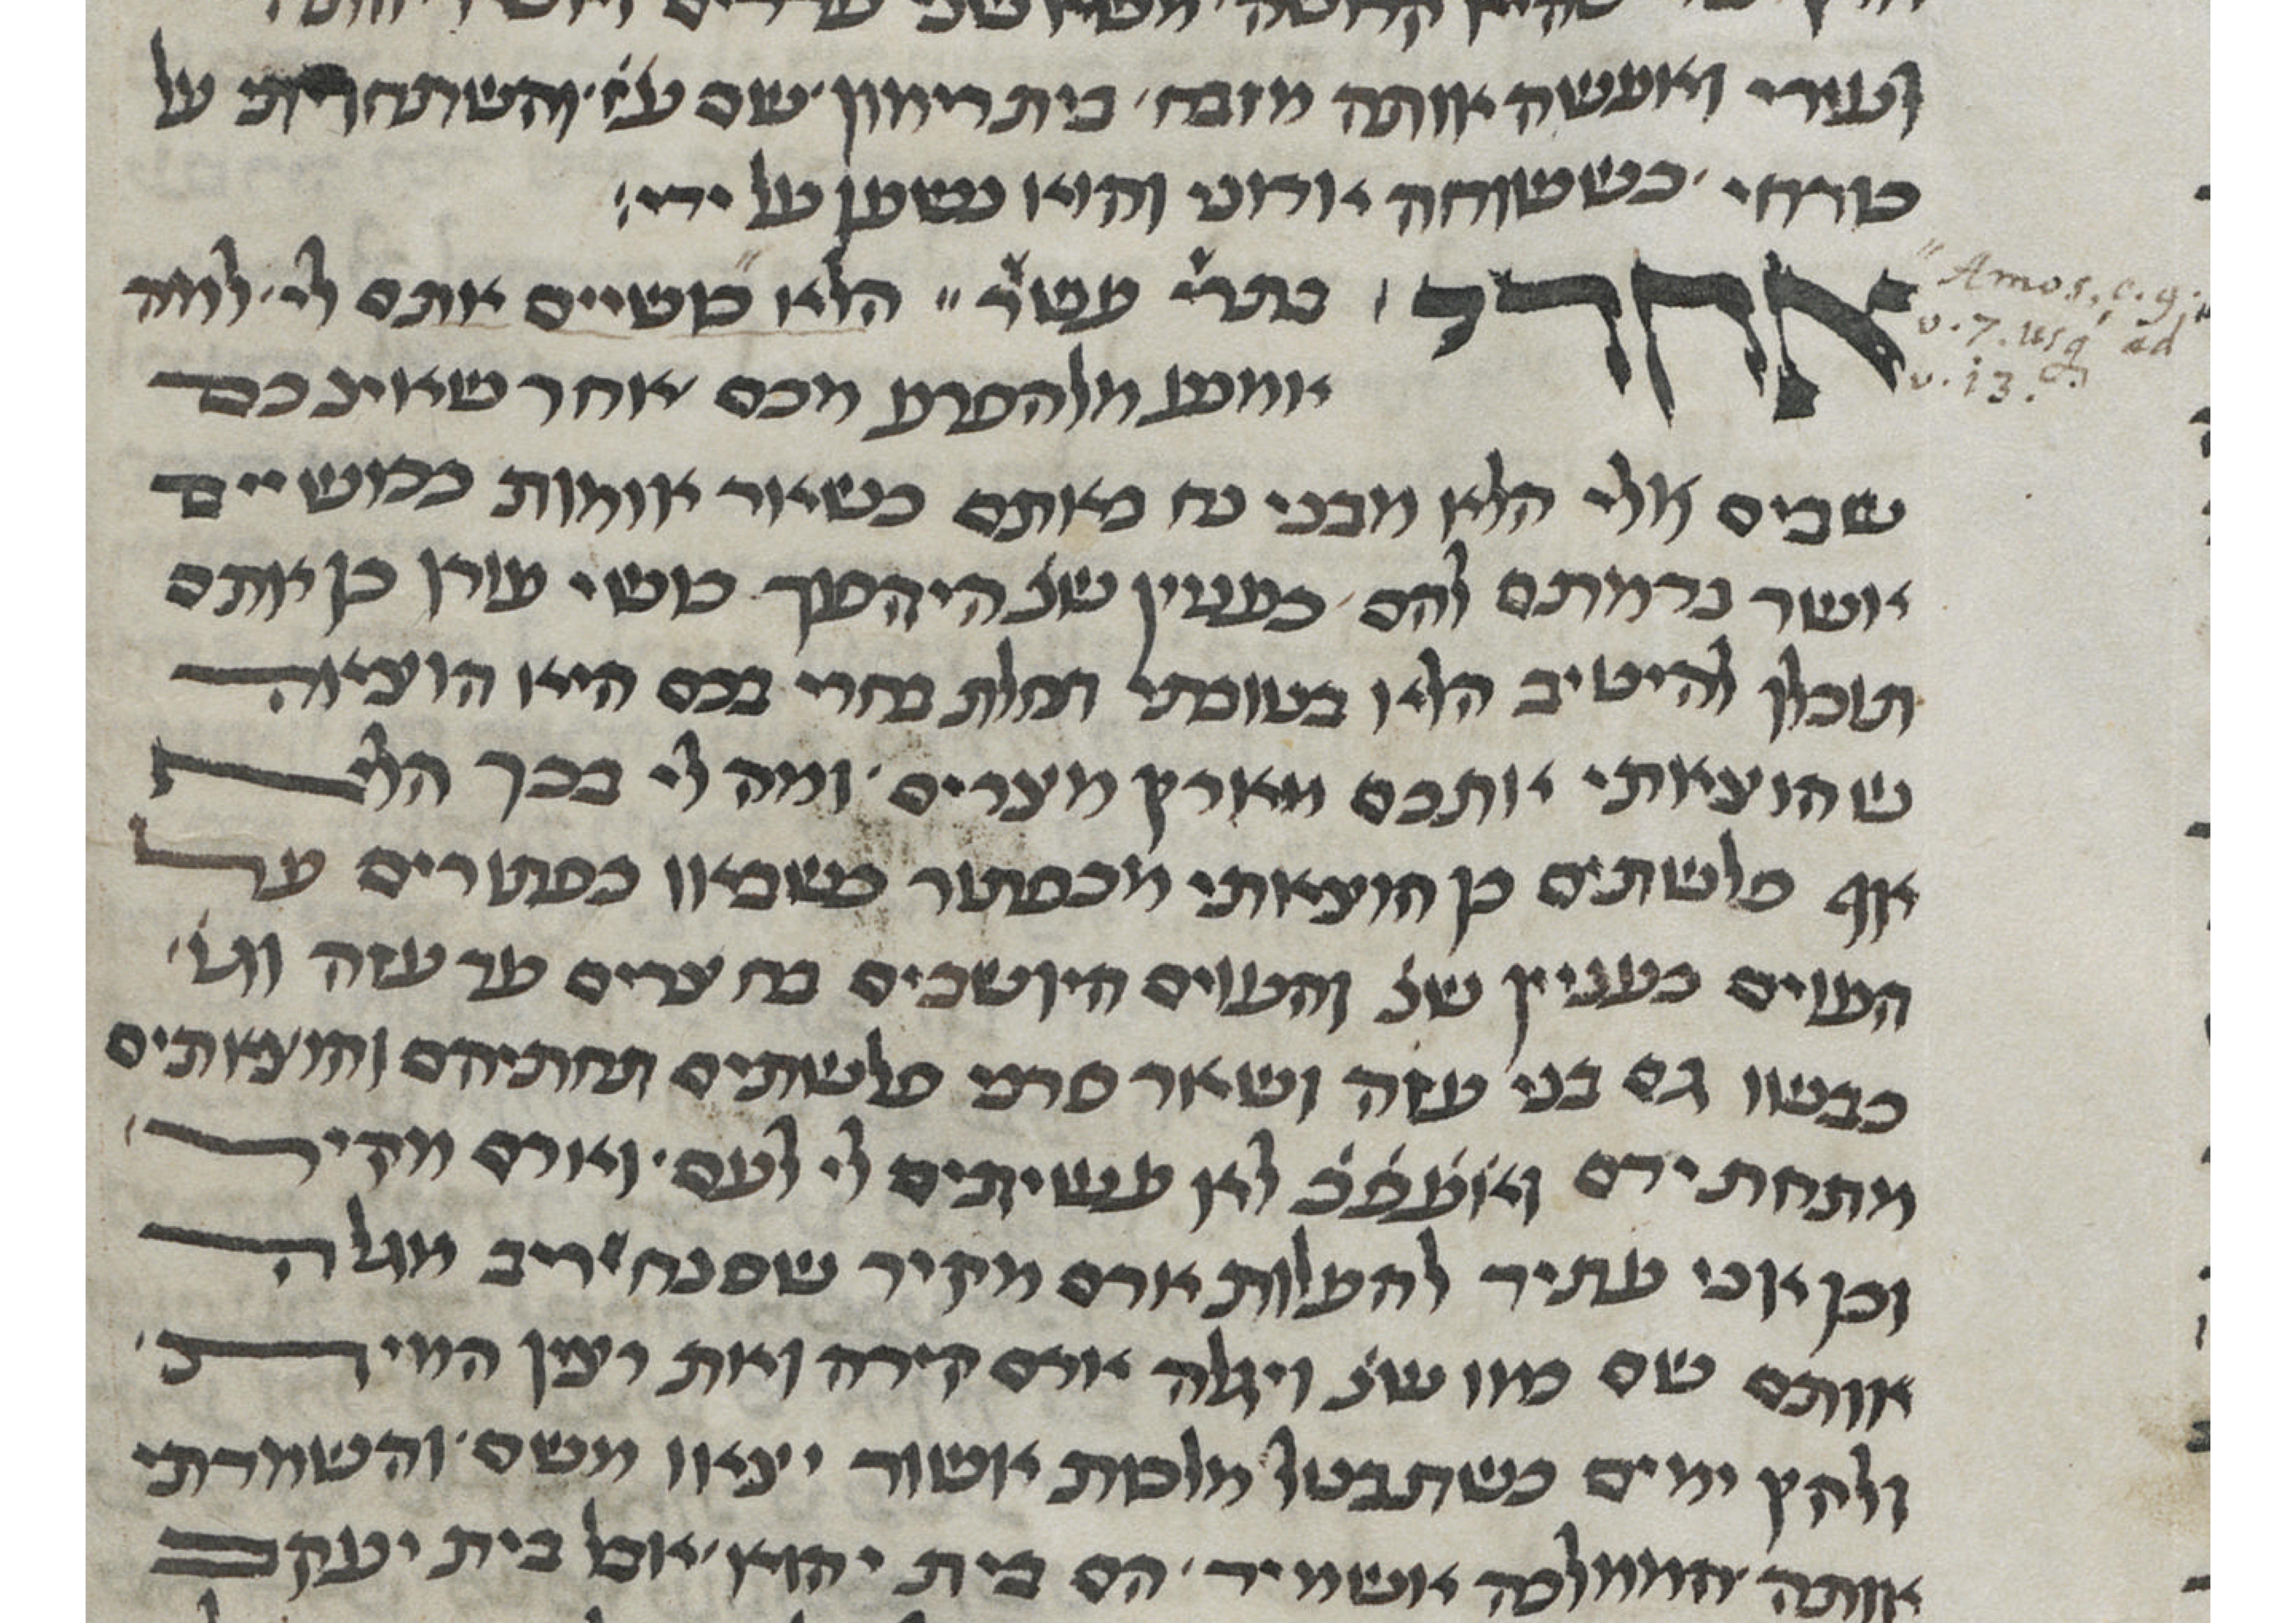 ונעורי ואעשה אותה מזבח׳ בית רימון׳ שם ע״ז׳ והשתחויתי על
כורחי׳ כששוחה אדוני והוא נשען על ידי׃
אחרי׳ בתרי עשר״ הלא כושיים אתם לי׳ למה
אמנע מלהפרע מכם אחר שאינכם
שבים אלי הלא מבני נח באתם כשאר אומות ככושיים
אשר נדמתם להם׳ כעניין שנ׳ היהפוך כושי עורו כן אתם
תוכלו להיטיב הלא בטובתי תחלת בחרי בכם היא הוציאה
שהוצאתי אתכם מארץ מצרים׳ ומה לי בכך הלא
אף פלשתים כן הוצאתי מכפתור כשבאו כפתורים על
העוים כעניין שנ׳ והעוים היושבים בחצרים עד עזה וגו׳
כבשו גם בני עזה ושאר סרני פלשתים תחתיהם והוצאתים
מתחת ידם ואעפ״כ לא עשיתים לי לעם׳ וארם מקיר׳
וכן אני עתיד להעלות ארם מקיר שסנחריב מגלה
אותם שם כמו שנ׳ ויגלה ארם קירה ואת רצין המית׳
ולקץ ימים כשתבטל מלכות אשור יצאו משם׳ והשמדתי
אותה הממלכה אשמיד׳ הם בית יהוא׳ אבל בית יעקב
Amos, c. 9.
v. 7. usq ad
v. 13.